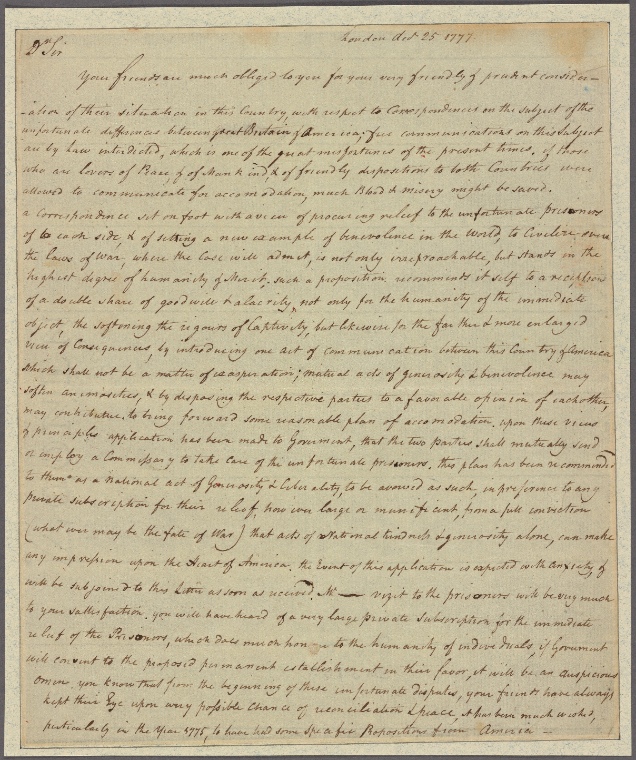 London Oct 25 1777
Dr Sir
Your friends are much obliged to you for your very friendly & prudent consider-
-ation of their situation in this Country, with respect to Correspondences on the subject of the
unfortunate differences between great Britain & America, free communications on this subject
are by law interdicted, which is one of the great misfortunes of the present times, if those
who are lovers of Peace, & of Mankind, & of friendly dispositions to both Countries were
allowed to communicate for accomodation, much Blood & misery might be saved.
a Correspondence set on foot with a view of procuring releef to the unfortunate prisoners
of to each side, & of setting a new example of benevolence in the World, to Civilize even
the laws of War, where the Case will admit, is not only irreproachable, but stands in the
highest degree of humanity & Merit, such a proposition recomments it self to a reception
of a double share of goodwill & alacrity, not only for the humanity of the immediate
object, the softening the rigours of Captivity, but likewise for the farther & more enlarged
view of Consequences, by introducing one act of communication between this Country & America
which shall not be a matter of exasperation; mutual acts of generosity & benevolence may
soften animosities, & by disposing the respective parties to a favorable opinion of each other,
may contribute to bring forward some reasonable plan of accomodation, upon these views
& principles application has been made to Goverment, that the two parties shall mutually send
or imploy a Commissary to take Care of the unfortunate prisoners, this plan has been recommended
to them as a National act of Generosity & Liberality, to be avowed as such, in preference to any
private subscription for their releef how ever large or munificent, from a full conviction
(what ever may be the fate of War) that acts of National kindness & generosity alone, can make
any impression upon the Heart of America. the Event of this application is expected with anxiety &
will be subjoined to this Letter as soon as received. Mr — vizit to the prisoners will be very much
to your sattisfaction. you will have heard of a very large private Subscription for the immediate
releef of the Prisoners, which does much honour to the humanity of individuals, if Goverment
will consent to the proposed permanent establishment in their favor, it will be an auspicious
Omen. you know that from the beginning of these unfortunate disputes, your friends have always
kept their Eye upon every possible Chance of reconciliation & peace, it has been much wished,
particularly in the Year 1775, to have had some Specific Propositions from America —